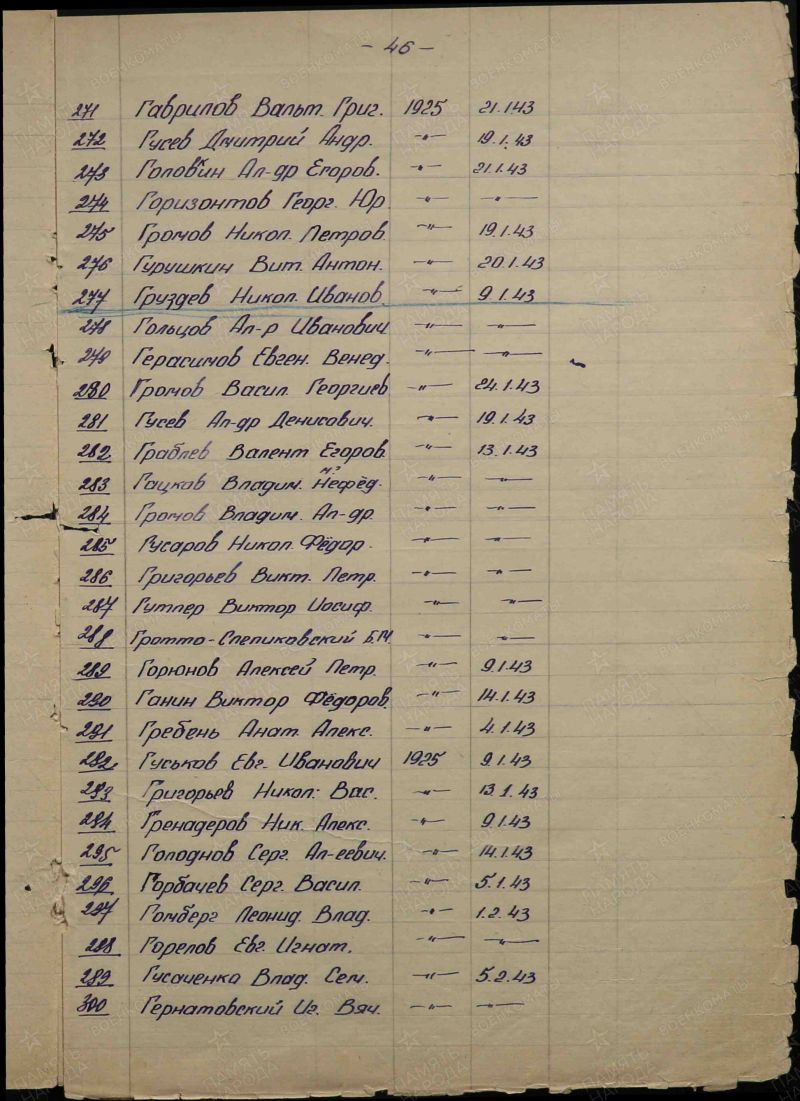 - 46 -
271 Гаврилов Вальт. Григ. 1925 21.1.43
272 Гусев Дмитрий Андр. -"- 19.1.43
273 Головкин Ал-др Егоров. -"- 21.1.43
274 Горизонтов Георг. Юр. -"- -"-
275 Громов Никол. Петров. -"- 19.1.43
276 Гурушкин Вит. Антон. -"- 20.1.43
277 Груздев Никол. Иванов. -"- 9.1.43
278 Гольцов Ал-р Иванович -"- -"-
279 Герасимов Евген. Венед. -"- -"-
280 Громов Васил. Георгиев -"- 24.1.43
281 Гусев Ал-др Денисович. -"- 19.1.43
282 Граблев Валент Егоров. -"- 13.1.43
283 Гацков Владим. Нефёд. -"- -"-
284 Громов Владим. Ал-др. -"- -"-
285 Гусаров Никол. Фёдор. -"- -"-
286 Григорьев Викт. Петр. -"- -"-
287 Гутлер Виктор Иосиф. -"- -"-
288 Гротто-Слепиковский Б.М. -"- -"-
289 Горюнов Алексей Петр. -"- 9.1.43
290 Ганин Виктор Фёдоров. -"- 14.1.43
291 Гребень Анат. Алекс. -"- 4.1.43
292 Гуськов Евг. Иванович 1925 9.1.43
293 Григорьев Никол. Вас. -"- 13.1.43
294 Гренадеров Ник. Алекс. -"- 9.1.43
295 Голоднов Серг. Ал-еевич. -"- 14.1.43
296 Горбачев Серг. Васил. -"- 5.1.43
297 Гомберг Леонид. Влад. -"- 1.2.43
298 Горелов Евг. Игнат. -"- -"-
299 Гусаченко Влад. Сем. -"- 5.2.43
300 Гернатовский Иг. Вяч. -"- -"-
ПАМЯТЬ НАРОДА
ВОЕНКОМАТЫ